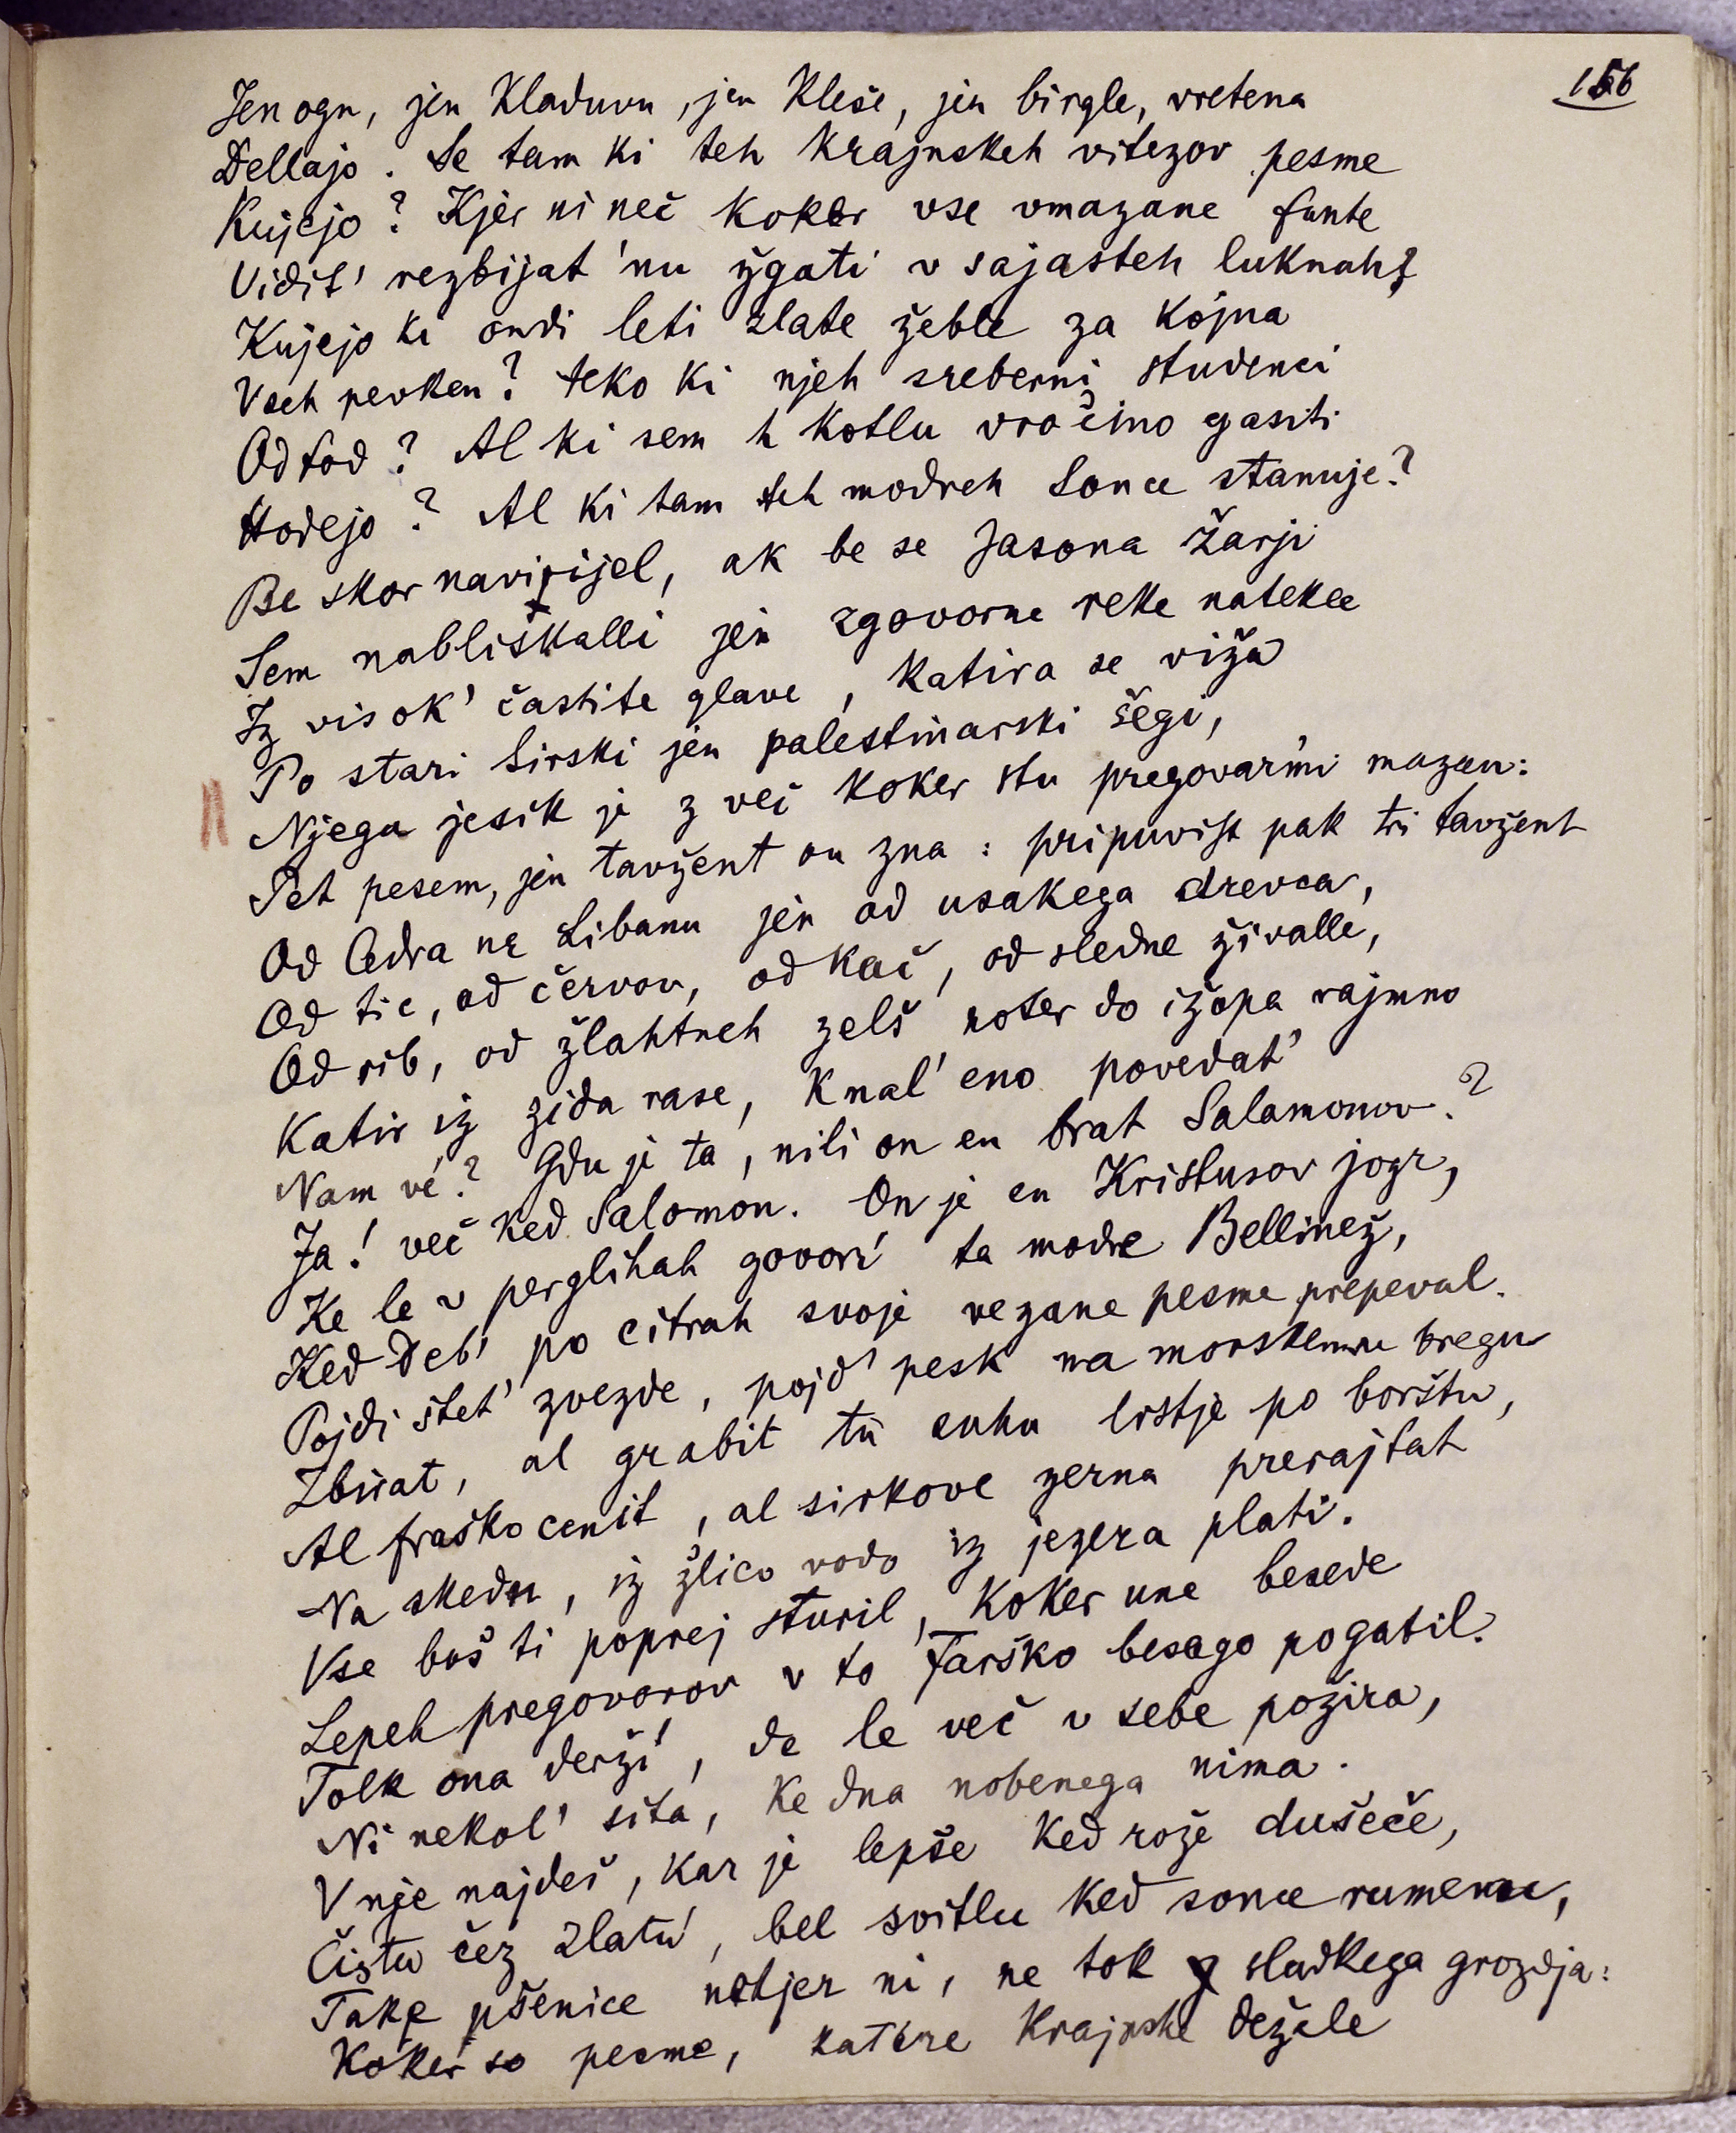 156
Jen ogn, jen Kladuvu, jen Kleše, jen birgle, vretena
Dellajo. Se tam ki teh Krajnskeh vitezov pesme
Kujejo? Kjer ni neč koker vse vmazane fante
Vidit' rezbijat 'nu žgati v sajasteh luknah?
Kujejo ki ondi leti zlate žeble za kojna
Vseh pevken? teko ki njeh sreberni studenci
Od tod? Al ki sem h kotlu vročino gasiti
Hodejo? Al ki tam teh modreh Sonce stanuje?
Be skor navirijel, ak be se Jasona Žarji
Sem nabliskalli jen zgovorne reke natekle
Iz visok' častite glave, katira se viža
Po stari Sirski jen palestinarski šegi,
Njegu jesik je z več koker stu pregovarmi mazan:
Pet pesem, jen tavžent on zna: pripuvist pak tri tavžent
Od Cedra ne Libanu jen od usakega drevca,
Od tic, od červov, od kač, od sledne živalle,
Od rib, od žlahtneh zelš noter do ižopa rajmno
Katir iz zida rase, K nal' eno povedat'
Nam vé? Gdu je ta, nili on en brat Salamonov?
Ja! več ked Salomon. On je en Kristusov jogr,
Ke le v perglihah govorí ta modre Bellinež,
Ked Deb' po citrah svoje vezane pesme prepeval.
Pojdi štet' zvezde, pojd' pesk na morskemu bregu
Zbirat, al grabit tü suhu listje po borštu,
Al fraško cenit, al sirkove zerna prerajtat
Na skednu, iz žlico vodo iz jezera plati.
Vse boš ti poprej sturil, Koker une besede
Lepeh pregovorov v to Farško besago pogatil.
Tolk ona derží, de le več v sebe požira,
Ni nekol' sita, ke dna nobenega nima.
V nje najdeš, kar je lepše ked rože dušeče,
Čistu čez zlatu, bel svitlu ked sonce rumenu,
Take pšenice nétjer ni, ne tok sladkega grozdja:
Koker so pesme, katére Krajnske dežele